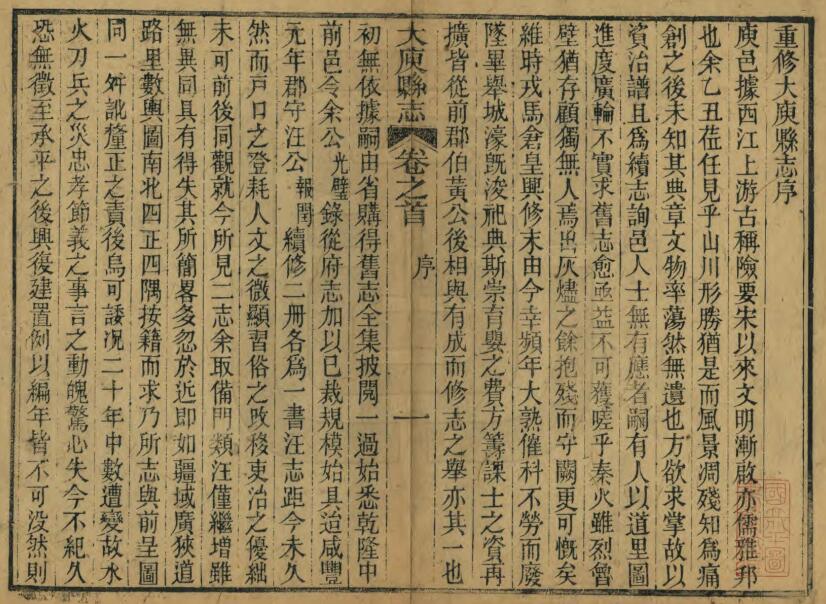 重修大庾縣志序
庾邑據西江上游古稱險要宋以來文明漸啟亦儒雅邦
也余乙丑莅任見乎山川形勝猶是而風景凋殘知為痛
創之後未知其典章文物率蕩然無遺也方欲求掌故以
資治譜且為續志詢邑人士無有應者嗣有人以道里圖
進度廣輪不實求舊志愈亟益不可獲嗟乎秦火雖烈魯
壁猶存顧獨無人焉出灰燼之餘抱殘而守闕更可慨矣
維時戎馬倉皇興修末由今幸頻年大熟催科不勞而廢
墜畢舉城濠既浚祀典斯崇育嬰之費方籌課士之資再
擴皆從前郡伯黃公後相與有成而修志之舉亦其一也
大庾縣志 卷之首 序 一
初無依據嗣由省購得舊志全集披閱一過始悉乾隆中
前邑令余公光璧錄從府志加以已裁規模始具迨咸豐
元年郡守汪公報閏續修二冊各為一書汪志距今未久
然而戶口之登耗人文之微顯習俗之改移吏治之優絀
未可前後同觀就今所見二志余取備門類汪僅繼增雖
無異同具有得失其所簡畧多忽於近即如疆域廣狹道
路里數輿圖南北四正四隅按籍而求乃所志與前呈圖
同一舛訛釐正之責後烏可諉況二十年中數遭變故水
火刀兵之災忠孝節義之事言之動魄驚心失今不紀久
恐無徵至承平之後興復建置例以編年皆不可没然則